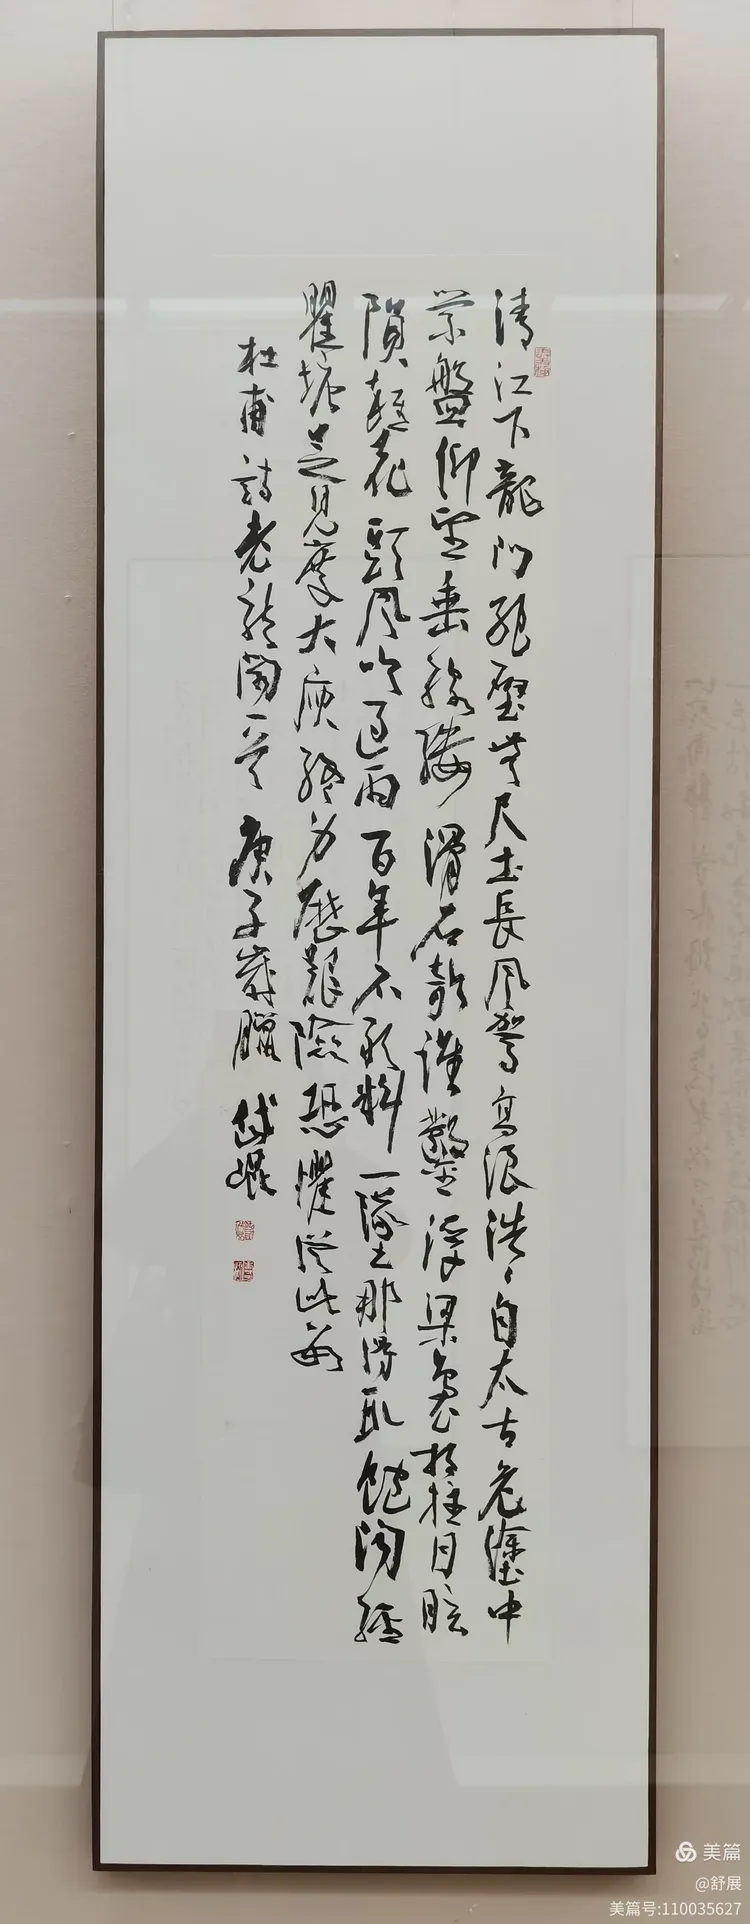 清江下龍門絕壁無尺土長風駕高浪浩〻自太古危塗中
縈盤仰望垂線縷滑石欹誰鑿浮梁裊相拄目眩
隕雜花頭風吹過雨百年不敢料一墜那得取飽聞經
瞿塘足見度大庾終身歷艱險恐懼從此數
杜甫詩 龍 閣一首 庚子歲臘
美篇
@舒展
美篇号:110035627